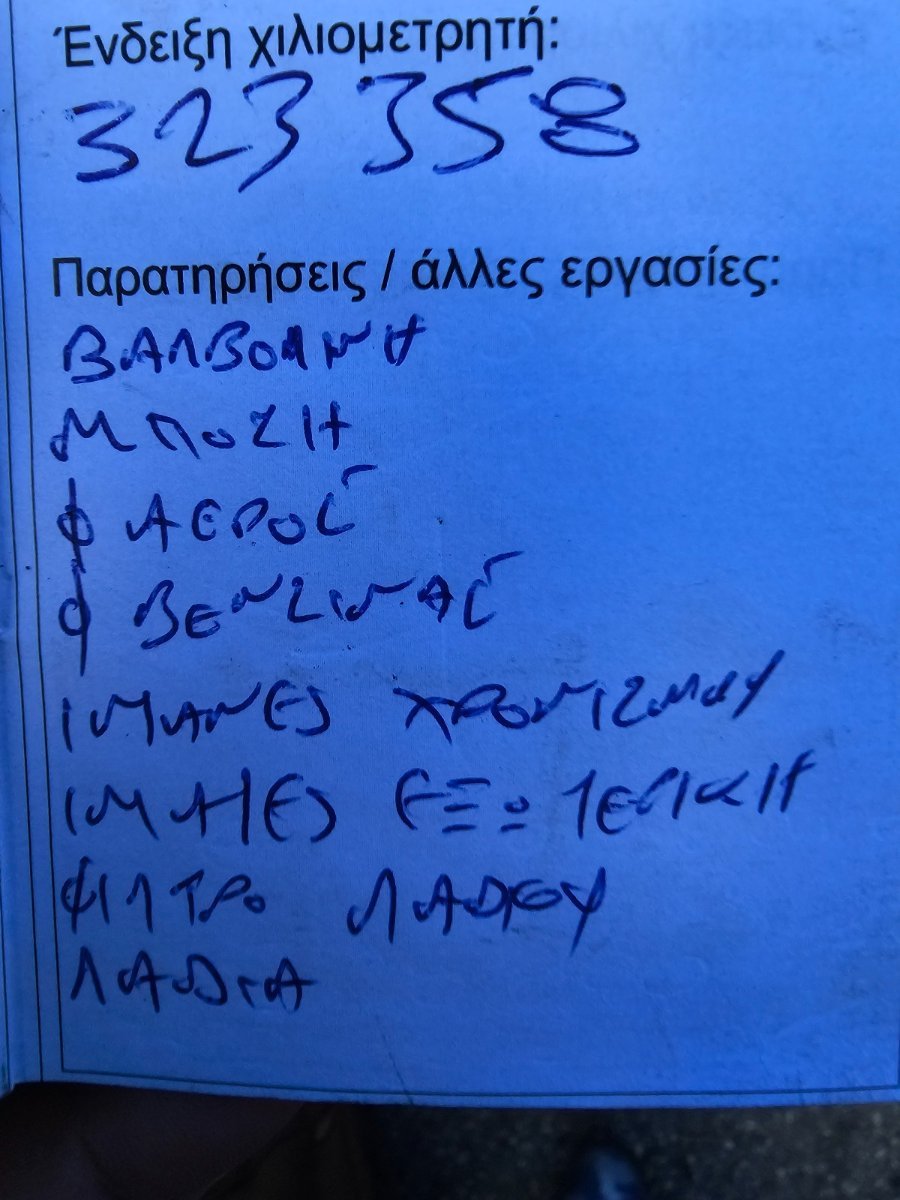 Ένδειξη χιλιομετρητή:
323 358
Παρατηρήσεις / άλλες εργασίες:
ΒΑΛΒΟΛΙΝΗ
ΜΠΟΖΗ
Φ ΑΕΡΟΣ
Φ ΒΕΝΖΙΝΑΣ
ΙΜΑΝΕΣ ΧΡΟΝΙΖΜΟΥ
ΙΜΑΤΕΣ ΕΞΩΤΕΡΙΚΗ
ΦΙΛΤΡΟ ΛΑΔΙΟΥ
ΛΑΔΙΑ